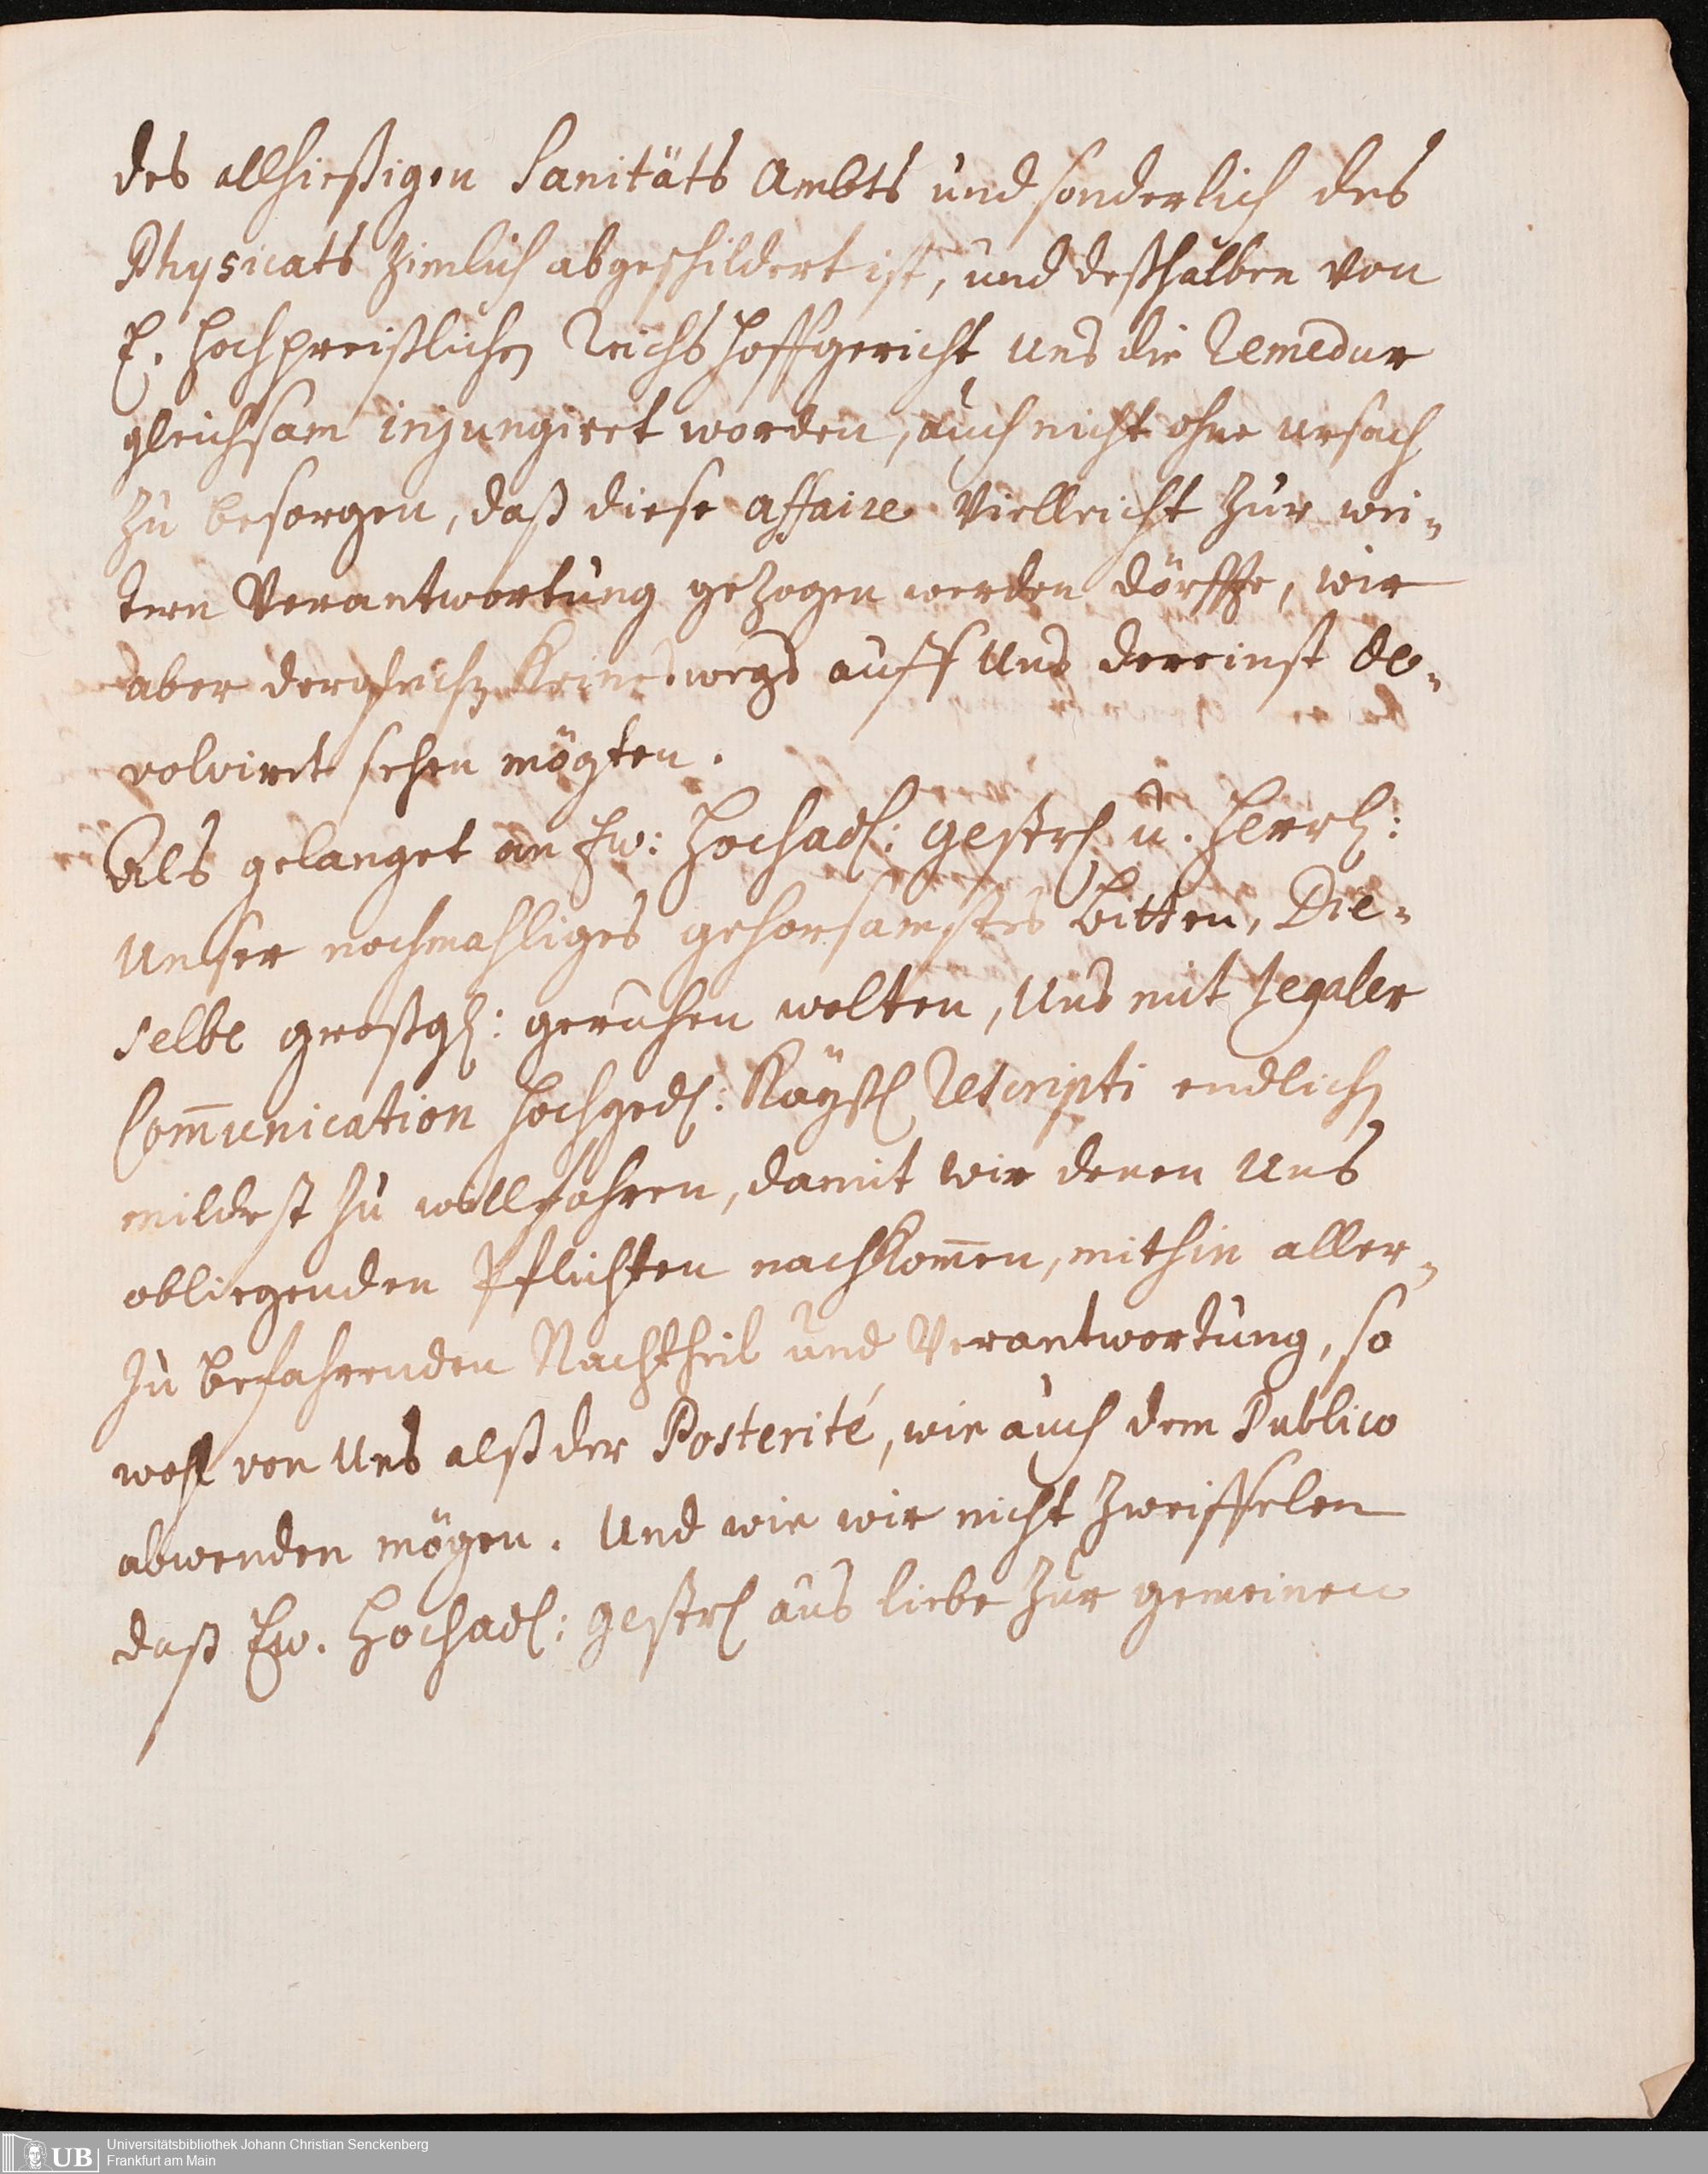 des allhießigen Sanitäts Ambts und sonderlich des
Physicats zimlich abgeschildert ist, und deßhalben von
E. Hochpreißlichen Reichs Hoffgericht uns die Remedur
gleichsam injungiret worden, auch nicht ohne Ursach
zu besorgen, daß diese affaire vielleicht zur wei-
tern Verantwortung gezogen werden dörffte, wir
aber dergleichen Keineswegs auff Uns dereinst de-
volviret sehen mögten.
Als gelanget an Ew: Hochadl: gestrl u. Herrl:
Unser nochmahliges gehorsamstes Bitten, Die-
selbe großgl: geruhen wolten, Uns mit legaler
Com̄unication hochgedl: Kaÿßl Rescripti endlich
mildest zu willfahren, damit wir denen Uns
obliegenden Pflichten nachkom̄en, mithin aller-
zu befahrenden Nachtheil und Verantwortung, so
wohl von Uns alß der Posterité, wie auch dem Publico
abwenden mögen. Und wie wir nicht Zweiffelen
daß Ew. Hochadl: gestrl aus liebe zur gemeinen
UB
Universitätsbibliothek Johann Christian Senckenberg
Frankfurt am Main